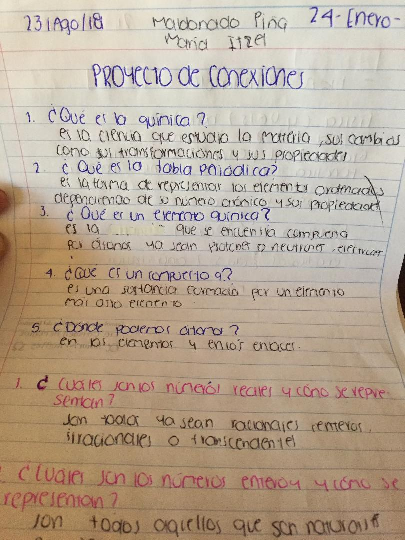 23/Ago/18 Maldonado Piña 24-Enero-
María Itzel
PROYECTO DE CONEXIONES
1. ¿Qué es la química?
es la ciencia que estudia la materia, sus cambios
como sus transformaciones y sus propiedades
2. ¿Qué es la tabla periódica?
es la forma de representar los elementos ordenados
dependiendo de su número atómico y sus propiedades
3. ¿Qué es un elemento química?
es la que se encuentra
por átomos ya sean protones o neutrones, electrones
4. ¿Qué es un compuesto q?
es una sustancia formado por un elemento
mas otro elemento
5. ¿Dónde podemos átomos?
en los elementos y en los enlaces.
1. ¿Cuáles son los números reales y cómo se repre-
sentan?
son todos ya sean racionales
irracionales o trascendentes
¿Cuáles son los números enteros y cómo se
representan?
son todos aquellos que son naturales